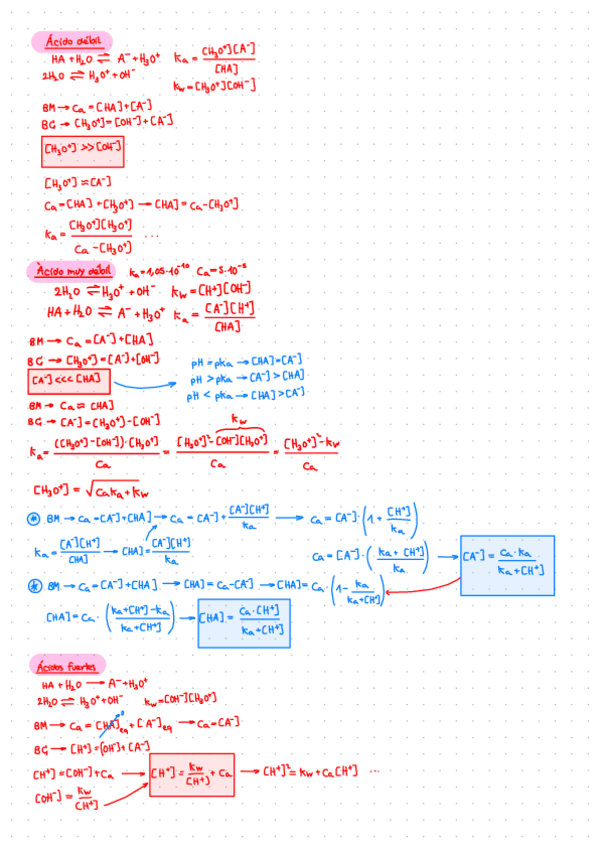 Ácido débil
HA + H₂O ⇌ A⁻ + H₃O⁺   Ka = [H₃O⁺][A⁻] / [HA]
2H₂O ⇌ H₃O⁺ + OH⁻
Kw = [H₃O⁺][OH⁻]
BM → Ca = [HA] + [A⁻]
BC → [H₃O⁺] = [OH⁻] + [A⁻]
[H₃O⁺] >> [OH⁻]
[H₃O⁺] ≈ [A⁻]
Ca = [HA] + [H₃O⁺] → [HA] = Ca - [H₃O⁺]
Ka = [H₃O⁺][H₃O⁺] / Ca - [H₃O⁺] ...
Ácido muy débil   Ka = 1,05·10⁻¹⁰   Ca = 5·10⁻⁵
2H₂O ⇌ H₃O⁺ + OH⁻   Kw = [H⁺][OH⁻]
HA + H₂O ⇌ A⁻ + H₃O⁺   Ka = [A⁻][H⁺] / [HA]
BM → Ca = [A⁻] + [HA]
BC → [H₃O⁺] = [A⁻] + [OH⁻]
[A⁻] <<< [HA]
pH = pKa → [HA] = [A⁻]
pH > pKa → [A⁻] > [HA]
pH < pKa → [HA] > [A⁻]
BM → Ca ≈ [HA]
BC → [A⁻] = [H₃O⁺] - [OH⁻]
Kw
Ka = ([H₃O⁺] - [OH⁻])·[H₃O⁺] / Ca = [H₃O⁺]² - [OH⁻][H₃O⁺] / Ca = [H₃O⁺]² - Kw / Ca
[H₃O⁺] = √CaKa + Kw
* BM → Ca = [A⁻] + [HA] → Ca = [A⁻] + [A⁻][H⁺] / Ka → Ca = [A⁻]·(1 + [H⁺] / Ka)
Ka = [A⁻][H⁺] / [HA] → [HA] = [A⁻][H⁺] / Ka
Ca = [A⁻]·(Ka + [H⁺] / Ka) → [A⁻] = Ca·Ka / Ka + [H⁺]
* BM → Ca = [A⁻] + [HA] → [HA] = Ca - [A⁻] → [HA] = Ca·(1 - Ka / Ka + [H⁺])
[HA] = Ca·(Ka + [H⁺] - Ka / Ka + [H⁺]) → [HA] = Ca·[H⁺] / Ka + [H⁺]
Ácidos fuertes
HA + H₂O → A⁻ + H₃O⁺
2H₂O ⇌ H₃O⁺ + OH⁻   Kw = [OH⁻][H₃O⁺]
BM → Ca = [HA]eq + [A⁻]eq → Ca = [A⁻]
0
BC → [H⁺] = [OH⁻] + [A⁻]
[H⁺] = [OH⁻] + Ca → [H⁺] = Kw / [H⁺] + Ca → [H⁺]² = Kw + Ca[H⁺] ...
[OH⁻] = Kw / [H⁺]